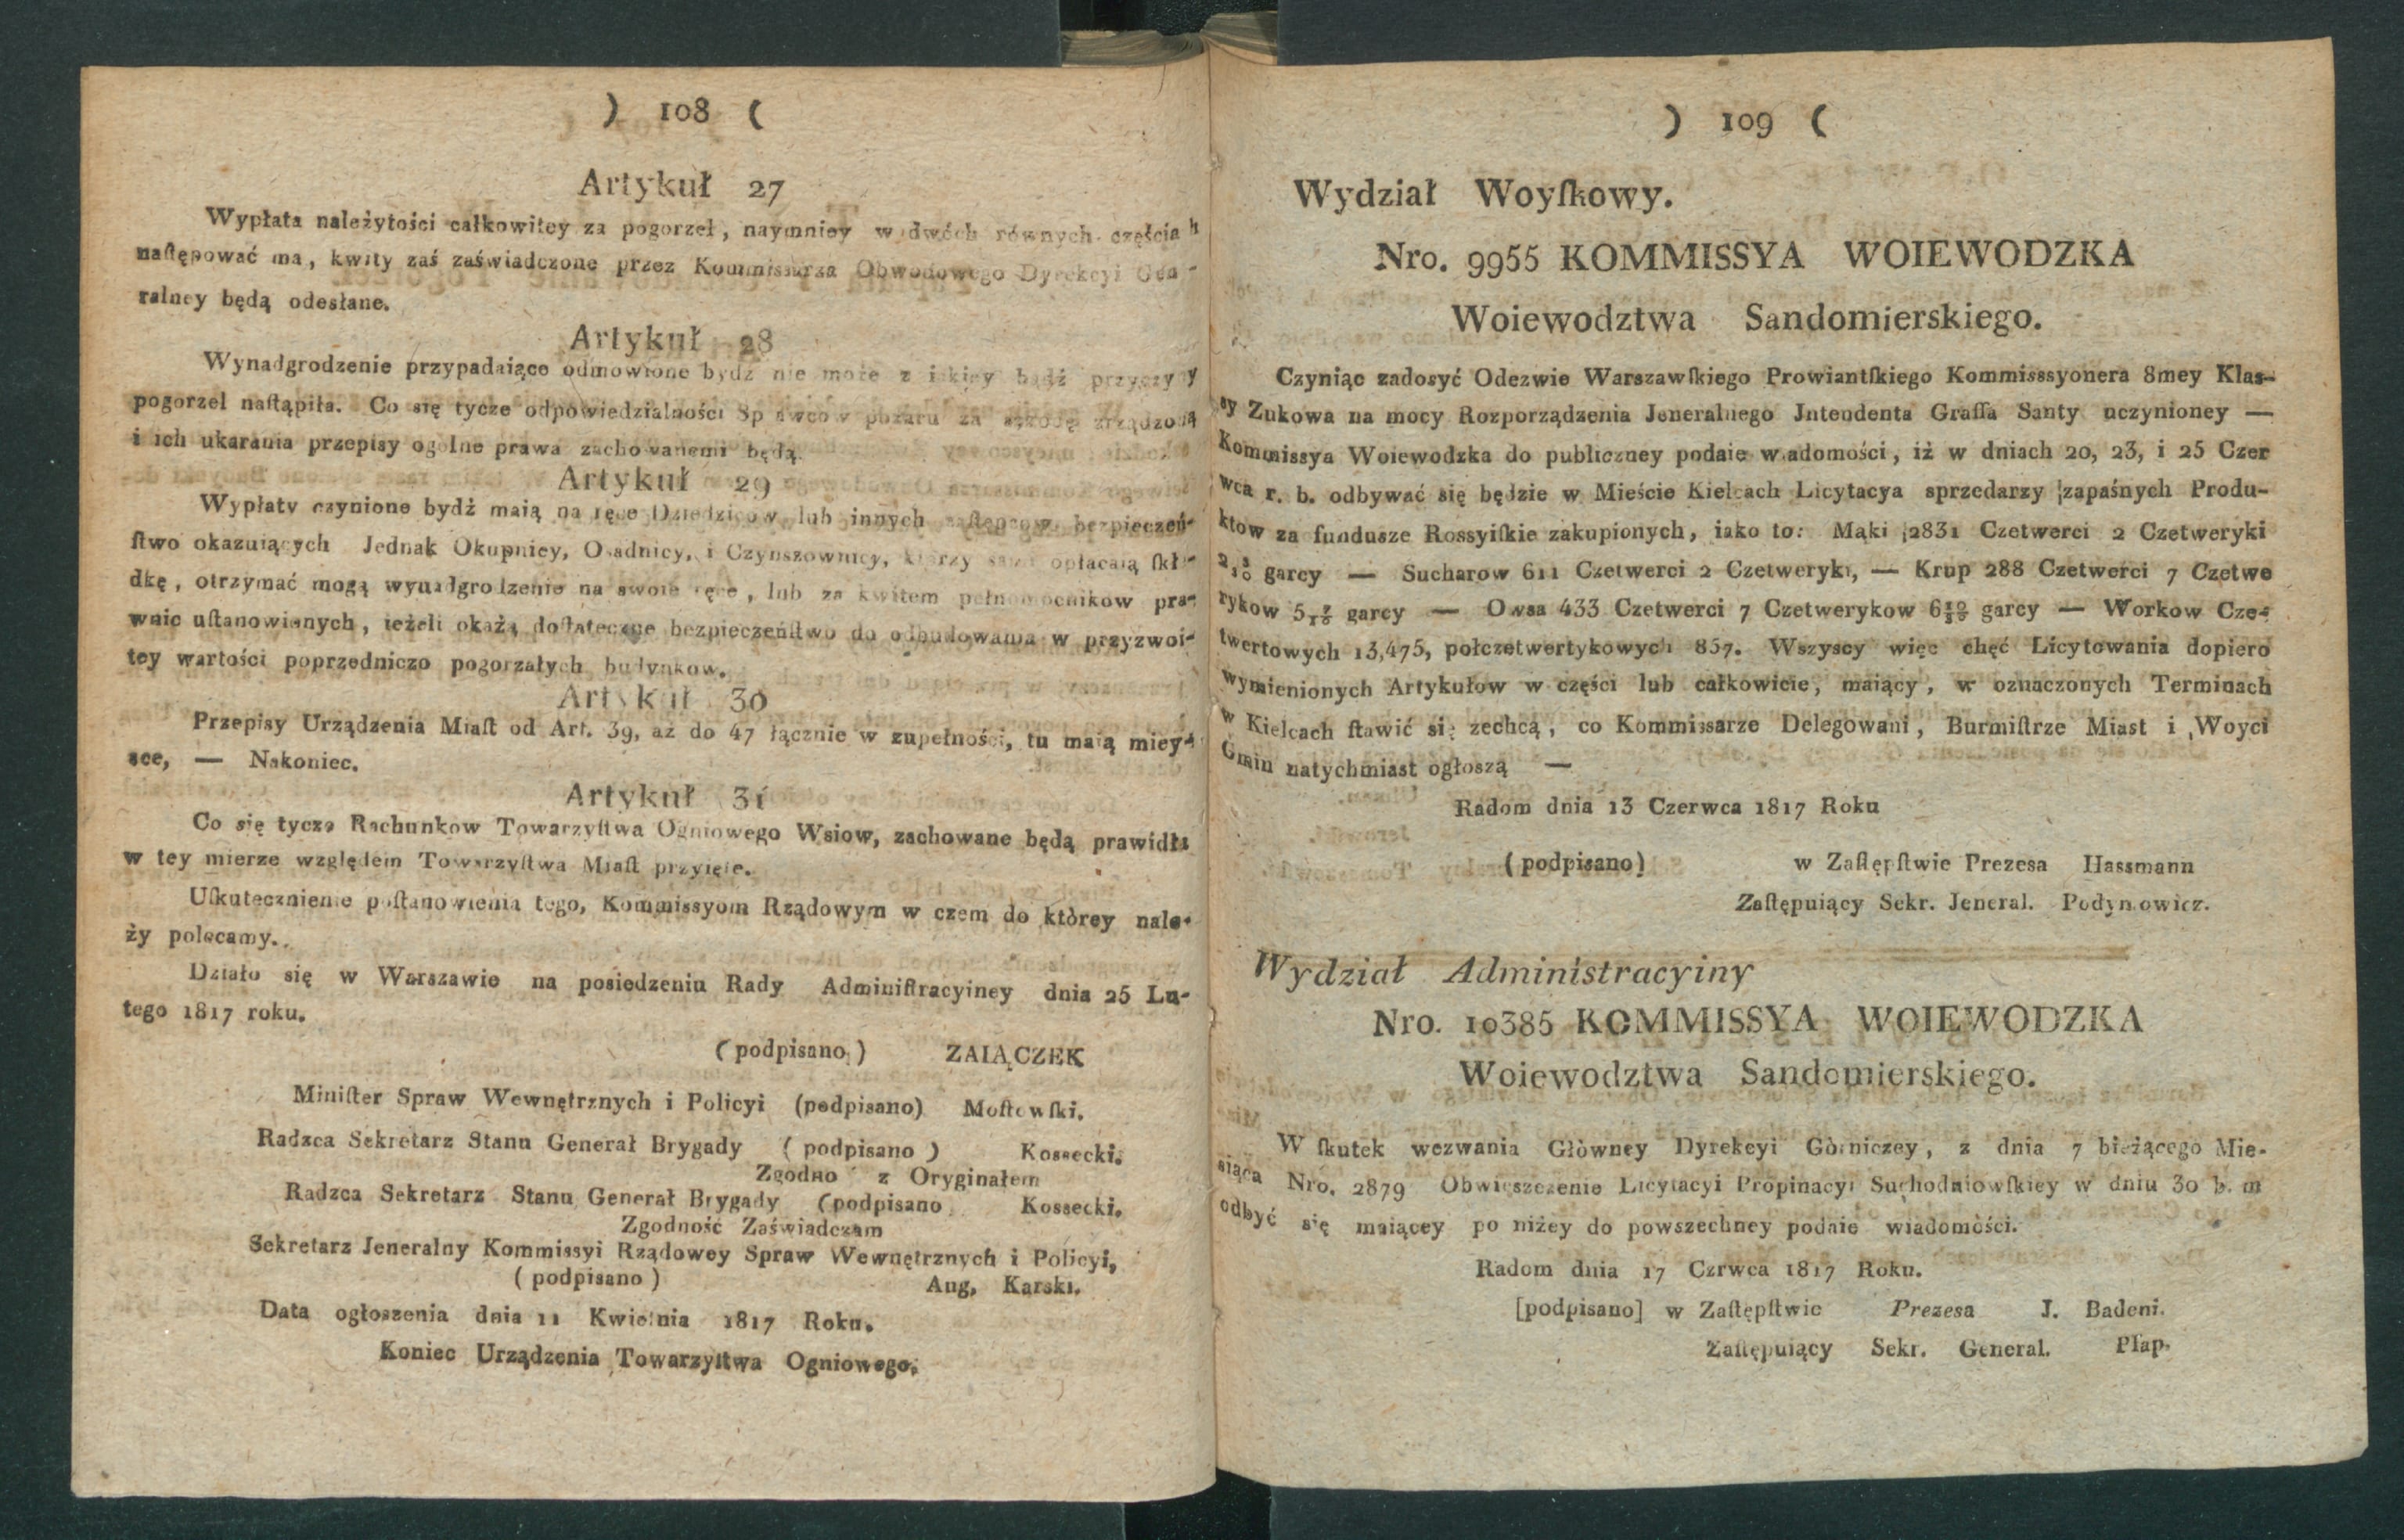 ) 108 (
Artykuł 27
Wypłata należytości całkowitey za pogorzel, naymniey w dwóch równych częścia h
naſtępować ma, kwity zaś zaświadczone przez Kommissarza Obwodowego Dyrekcyi Gen-
ralney będą odesłane.
Artykuł 28
Wynadgrodzenie przypadaiące odmowione bydź nie może z iakiey bądź przyczy y
pogorzel naſtąpiła. Co się tycze odpowiedzialności Sp awcow pożaru za szkodę zrządzoną
i ich ukarania przepisy ogolne prawa zachowanemi będą.
Artykuł 29
Wypłaty czynione bydź maią na ręce Dziedzicow lub innych bezpieczeń-
ſtwo okazuiących Jednak Okupnicy, Osadnicy, i Czynszownicy, ktorzy sami opłacaią ſkła-
dkę, otrzymać mogą wynadgrodzenie na swoie ręce, lub za kwitem pełnomocnikow pra-
wnie uſtanowionych, ieżeli okażą doſtateczne bezpieczeńſtwo do odbudowania w przyzwoi-
tey wartości poprzedniczo pogorzałych budynkow.
Artykuł 30
Przepisy Urządzenia Miaſt od Art. 39, aż do 47 łącznie w zupełności, tu maią miey-
sce, — Nakoniec.
Artykuł 31
Co się tycze Rachunkow Towarzyſtwa Ogniowego Wsiow, zachowane będą prawidła
w tey mierze względem Towarzyſtwa Miaſt przyięte.
Uſkutecznienie poſtanowienia tego, Kommissyom Rządowym w czem do którey nale-
ży polecamy.
Działo się w Warszawie na posiedzeniu Rady Adminiſtracyiney dnia 25 Lu-
tego 1817 roku.
(podpisano) ZAIĄCZEK
Miniſter Spraw Wewnętrznych i Policyi (podpisano) Moſtowſki.
Radzca Sekretarz Stanu Generał Brygady ( podpisano ) Kossecki.
Zgodno z Oryginałem
Radzca Sekretarz Stanu Generał Brygady (podpisano Kossecki.
Zgodność Zaświadczam
Sekretarz Jeneralny Kommissyi Rządowey Spraw Wewnętrznych i Policyi,
( podpisano ) Aug, Karski.
Data ogłoszenia dnia 11 Kwietnia 1817 Roku.
Koniec Urządzenia Towarzyſtwa Ogniowego.
) 109 (
Wydział Woyſkowy.
Nro. 9955 KOMMISSYA WOIEWODZKA
Woiewodztwa Sandomierskiego.
Czyniąc zadosyć Odezwie Warszawſkiego Prowiantſkiego Kommisssyonera 8mey Klas-
sy Zukowa na mocy Rozporządzenia Jeneralnego Jntendenta Graffa Santy uczynioney —
Kommissya Woiewodzka do publiczney podaie wiadomości, iż w dniach 20, 23, i 25 Czer
wca r. b. odbywać się będzie w Mieście Kielcach Licytacya sprzedarzy zapaśnych Produ-
ktow za fundusze Rossyiſkie zakupionych, iako to: Mąki 2831 Czetwerci 2 Czetweryki
garcy — Sucharow 611 Czetwerci 2 Czetweryki, — Krup 288 Czetwerci 7 Czetwe
rykow garcy — Owsa 433 Czetwerci 7 Czetwerykow garcy — Workow Cze-
twertowych 13,475, połczetwertykowych 857. Wszyscy więc chęć Licytowania dopiero
wymienionych Artykułow w części lub całkowicie, maiący, w oznaczonych Terminach
w Kielcach ſtawić się zechcą, co Kommissarze Delegowani, Burmiſtrze Miast i Woyci
Gmin natychmiast ogłoszą —
Radom dnia 13 Czerwca 1817 Roku
(podpisano) w Zaſtępſtwie Prezesa Hassmann
Zaſtępuiący Sekr. Jeneral. Podynowicz.
Wydział Administracyiny
Nro. 10385 KOMMISSYA WOIEWODZKA
Woiewodztwa Sandomierskiego.
W ſkutek wezwania Głòwney Dyrekcyi Gòrniczey, z dnia 7 bieżącego Mie-
siąca Nro. 2879 Obwieszczenie Licytacyi Propinacyi Suchodniowſkiey w dniu 30 b. m
odbyć się maiącey po niżey do powszechney podaie wiadomości.
Radom dnia 17 Czrwca 1817 Roku.
[podpisano] w Zaſtępſtwie Prezesa J. Badeni.
Zaſtępuiący Sekr. General. Pſap.